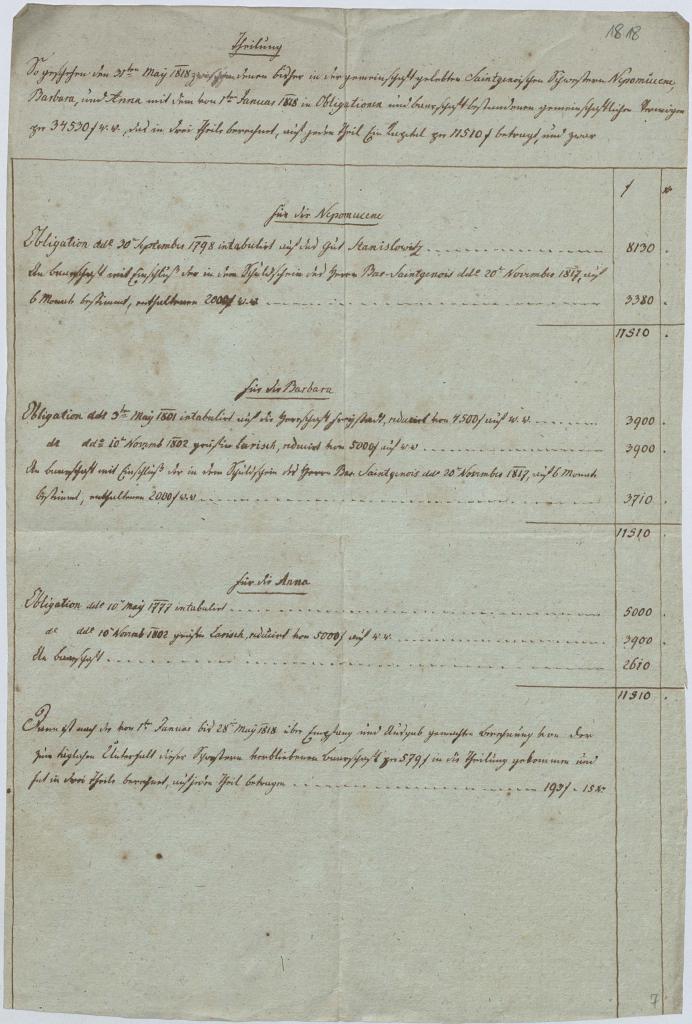 1818
Theilung
So geschehen den 31ten May 1818 zwischen denen bisher in der gemeinschaft gelebten Saintgenoisschen Schwestern Nepomucene,
Barbara, und Anna mit dem von 1ten Januar 1818 in Obligationen und baarschaft bestandenen gemeinschaftlichen Vermögen
per 34530 f w. w., das in drei Theile berechnet, auf jeden Theil Ein Kapital per 11510 f betragt, und zwar
f xr
für die Nepomucene
Obligation ddo 30 September 1798 intabulirt auf das gut Stanislowitz 8130 .
An baarschaft mit Einschluß der in dem Schuldschein des Herrn Bar. Saintgenois ddo 20t November 1817, auf
6 Monate bestimmt, enthaltenen 2000 f w. w 3380 .
11510 .
für die Barbara
Obligation ddo 3ten May 1801 intabulirt auf die Herrschaft Freystadt, reducirt von 4500 f auf w. w. 3900 .
do ddo 10t Novemb 1802 Larisch, reducirt von 5000 f auf w. w 3900 .
An baarschaft mit Einschluß der in dem Schuldschein des Herrn Bar. Saintgenois ddo 20t November 1817, auf 6 Monate
bestimmt, enthaltenen 2000 f w. w 3710 .
11510 .
für die Anna
Obligation ddo 10t May 1777 intabulirt 5000 .
do ddo 10t Novemb 1802 Larisch, reducirt von 5000 f auf w. w. 3900 .
An baarschaft 2610 .
11510 .
Dann ist nach der von 1ten Januar bis 28t May 1818 über Empfang und Ausgab gemachten Berechnung von der
zum täglichen Unterhalt dieser Schwestern verbliebenen baarschaft per 579 f in die Theilung gekommen und
hat in drei Theile berechnet, auf jeden Theil betragen 193 f - 15 xr
7